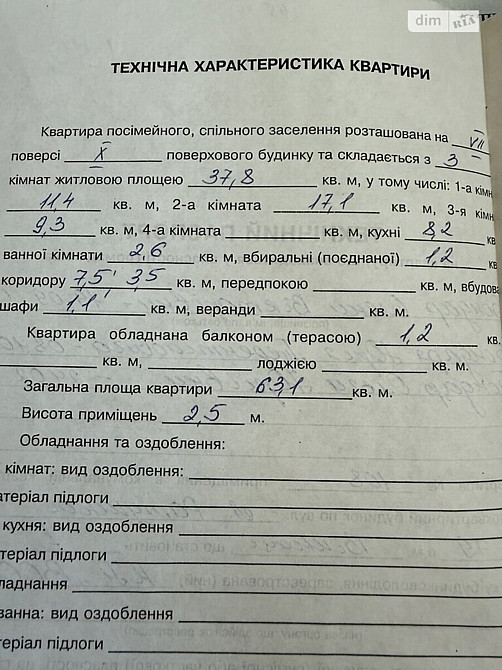 dim RIA
ТЕХНІЧНА ХАРАКТЕРИСТИКА КВАРТИРИ
Квартира посімейного, спільного заселення розташована на VII
поверсі X поверхового будинку та складається з 3
кімнат житловою площею 37,8 кв. м, у тому числі: 1-а кімн
11,4 кв. м, 2-а кімната 17,1 кв. м, 3-я кімн
9,3 кв. м, 4-а кімната кв. м, кухні 8,2 кв
ванної кімнати 2,6 кв. м, вбиральні (поєднаної) 1,2 кв.
коридору 7,5 3,5 кв. м, передпокою кв. м, вбудова
шафи 1,1 кв. м, веранди кв. м.
Квартира обладнана балконом (терасою) 1,2 кв.
кв. м, лоджією кв. м.
Загальна площа квартири 63,1 кв. м.
Висота приміщень 2,5 м.
Обладнання та оздоблення:
кімнат: вид оздоблення:
атеріал підлоги
кухня: вид оздоблення
атеріал підлоги
ладнання
ванна: вид оздоблення
теріал підлоги